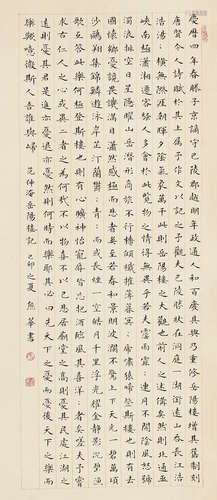 慶曆四年春滕子京謫守巴陵郡越明年政通人和百廢具興乃重修岳陽樓增其舊制刻
唐賢今人詩賦於其上屬予作文以記之予觀夫巴陵勝狀在洞庭一湖銜遠山吞長江浩
浩湯:橫無際涯朝暉夕陰氣象萬千此則岳陽樓之大觀也前人之述備矣然則北通巫
峽南極瀟湘遷客騷人多會於此覽物之情得無異乎若夫霪雨霏:連月不開陰風怒號
濁浪排空日星隱耀山岳潛形商旅不行檣傾楫摧薄暮冥:虎嘯猿啼登斯樓也則有去
國懷鄉憂讒畏譏滿目蕭然感極而悲者矣至若春和景明波瀾不驚上下天光一碧萬頃
沙鷗翔集錦鱗游泳岸芷汀蘭鬱:青:而或長煙一空皓月千里浮光耀金靜影沉璧漁
歌互答此樂何極登斯樓也則有心曠神怡寵辱皆忘把酒臨風其喜洋:者矣嗟夫予嘗
求古仁人之心或異二者之為何哉不以物喜不以己悲居廟堂之高則憂其民處江湖之
遠則憂其君是進亦憂退亦憂然則何時而樂耶其必曰先天下之憂而憂後天下之樂而
樂歟噫微斯人吾誰與歸 范仲淹岳陽樓記 己卯之夏 熊華書